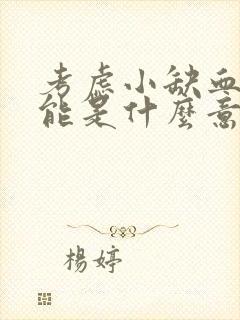 考虑小缺血
能是什麼意
楊婷